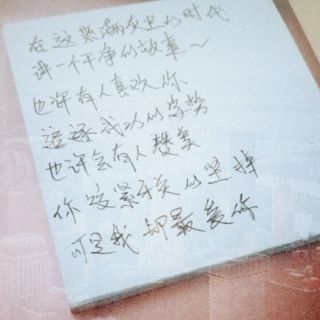 在这裝满灰尘的时代
讲一个干净的故事～
也许有人喜欢你
追逐成功的姿势
也许会有人赞美
你咬紧牙关的坚持
可是我却最爱你